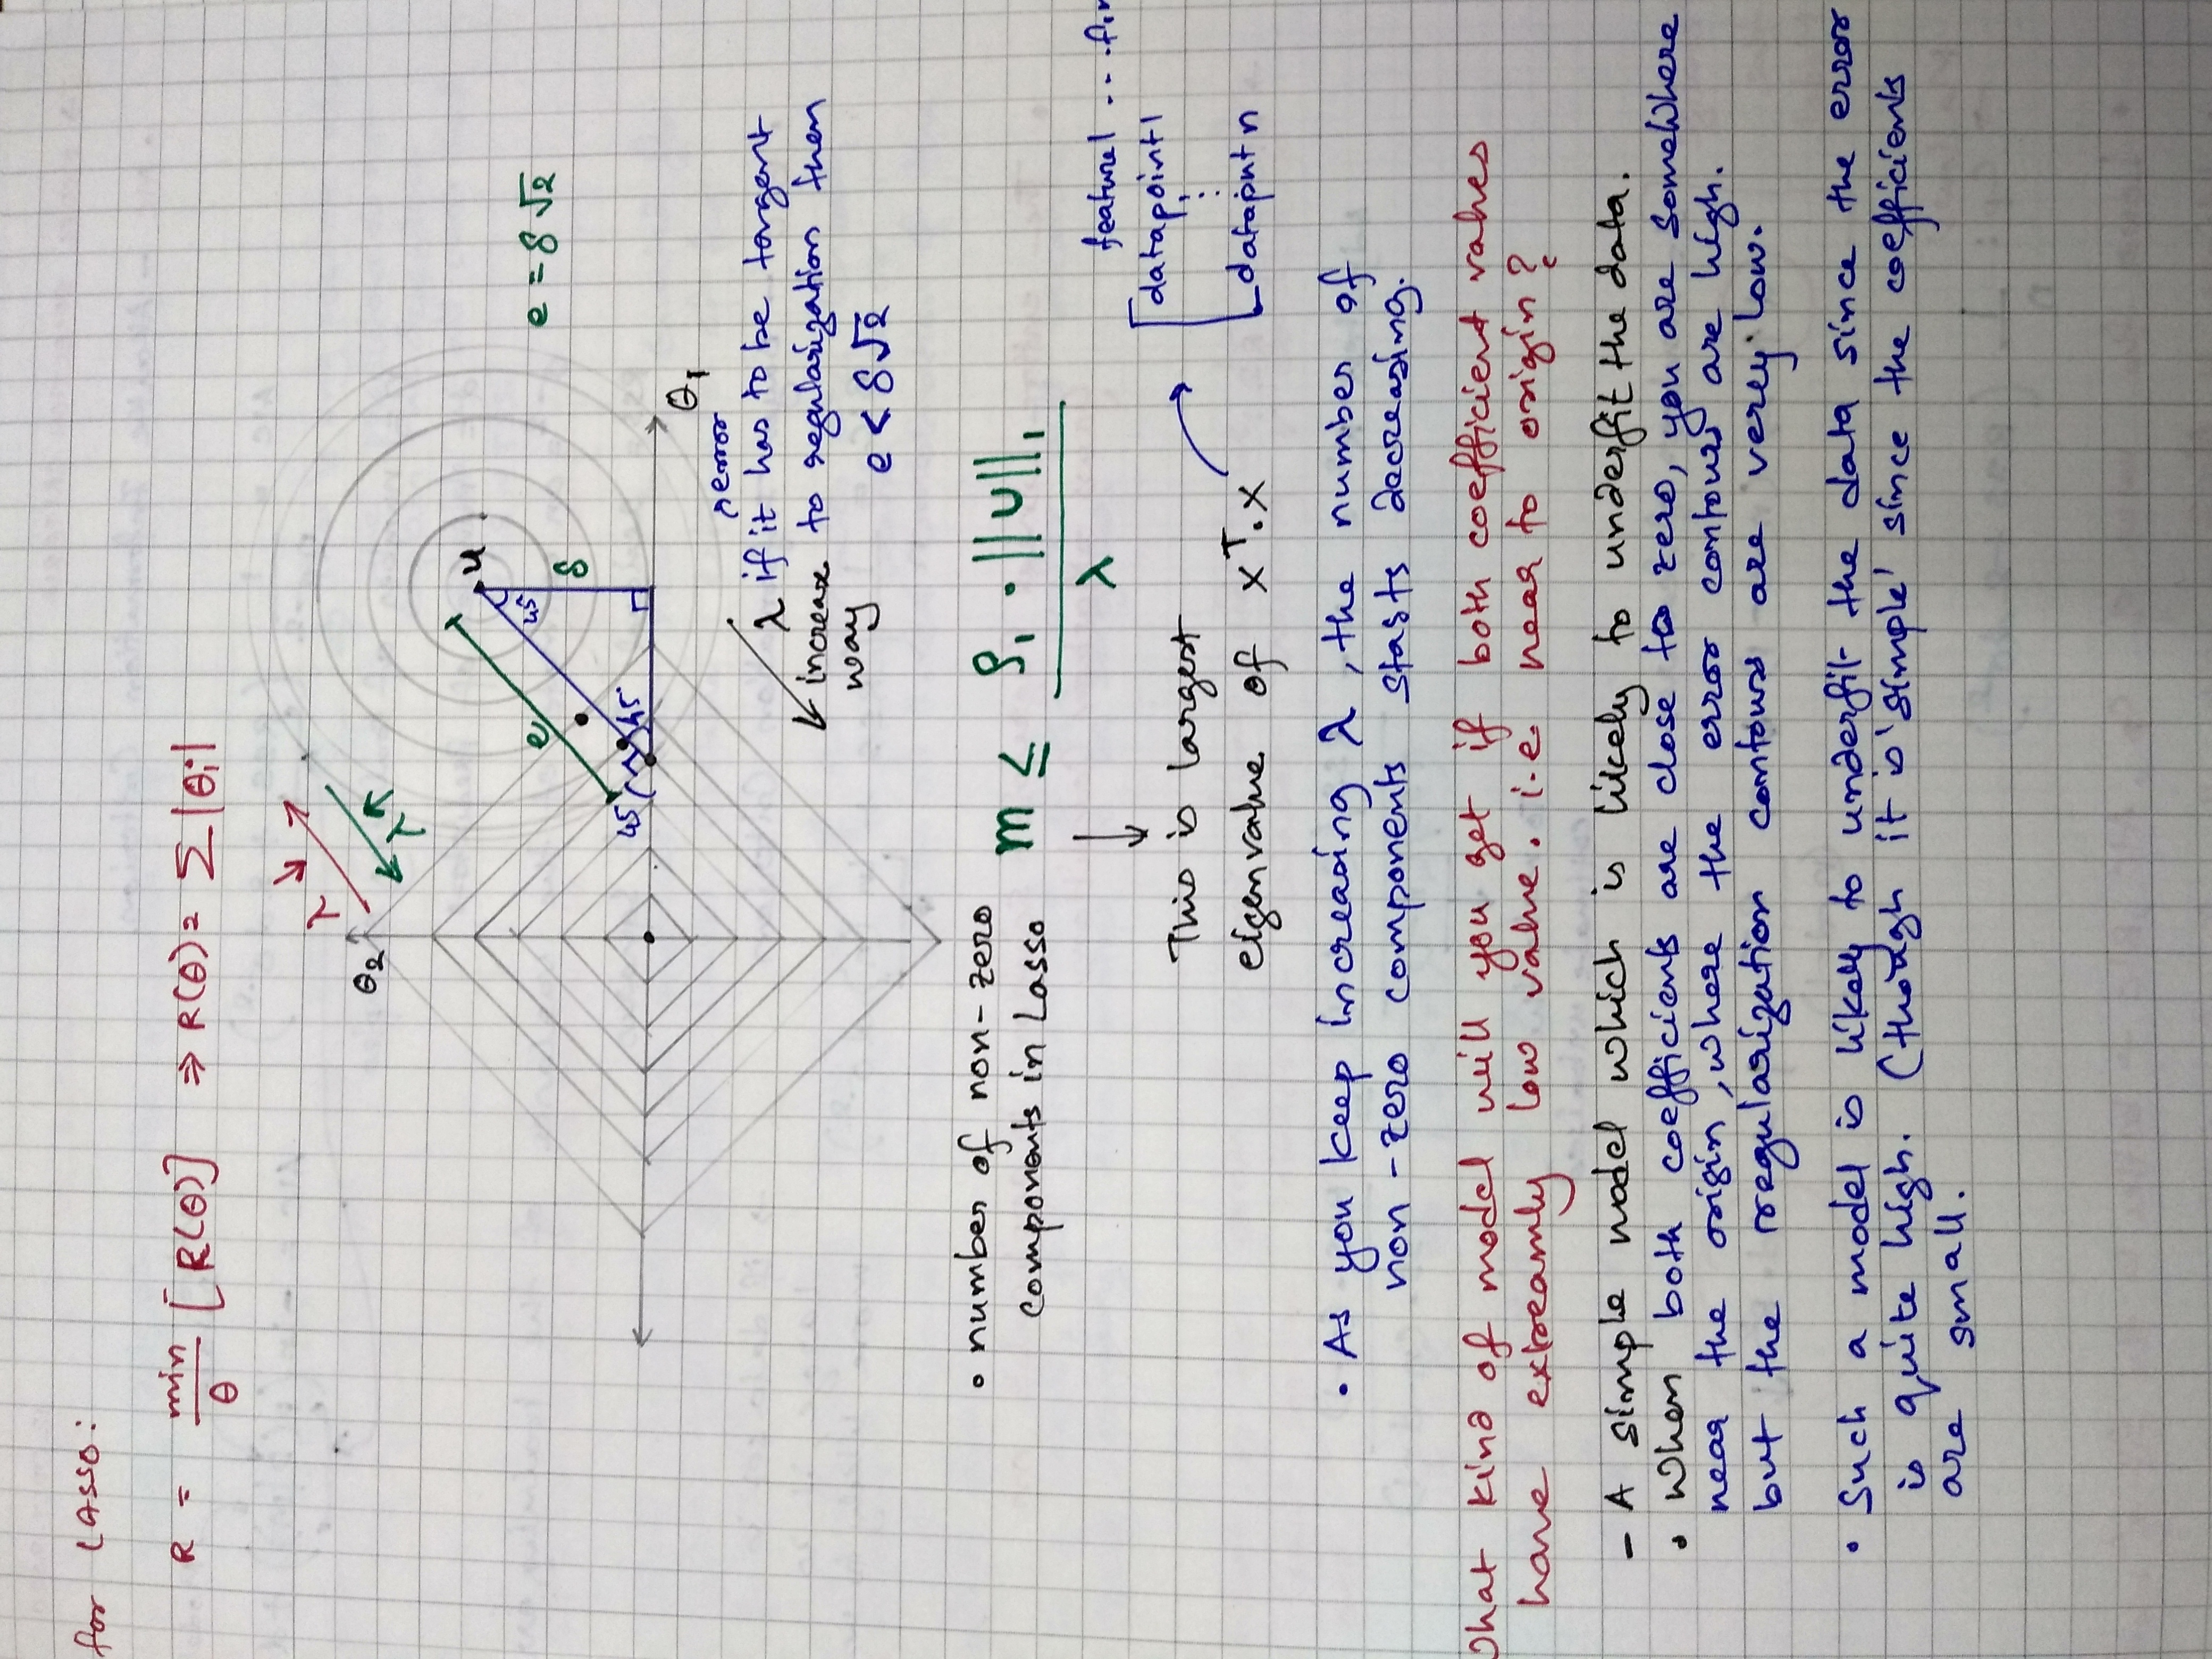 For Lasso:
R = min θ [R(θ)] ⇒ R(θ) = Σ|θi|
λ
λ
θ2
u
e = δ√2
45°
e
δ
45°
45°
θ1
error
λ
if it has to be tangent
increase
to regularization then
way
e < δ√2
• number of non-zero
components in Lasso
m ≤ δ1 · ||u||1 / λ
feature1 ...
This is largest
eigenvalue of X^T·X
datapoint1
⋮
dataput n
• As you keep increasing λ, the number of
non-zero components starts decreasing.
What kind of model will you get if both coefficient values
have extreamly low value. i.e. near to origin?
- A simple model which is likely to underfit the data.
• When both coefficients are close to zero, you are somewhere
near the origin, where the error contours are high.
but the regularization contours are very low.
• Such a model is likely to underfit the data since the error
is quite high. (though it is 'simple' since the coefficients
are small.